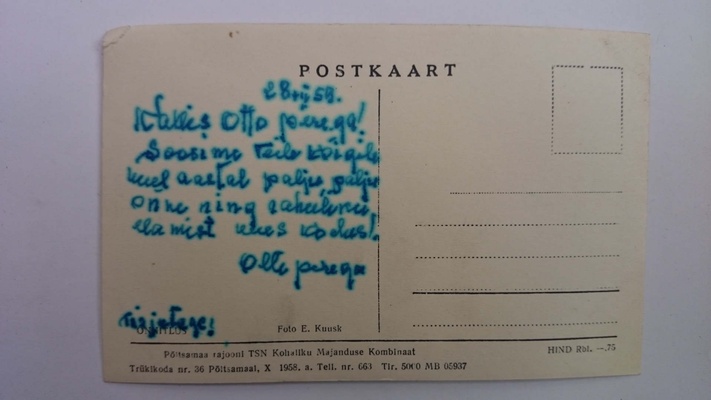 POSTKAART
Kallis Otto perega!
Soovime Teile kõigile
uuel aastal palju, palju
õnne ning rahulikku
elamist uues kodus!
Olli perega
Kirjutage!
ÕNNITLUS
Foto E. Kuusk
Põltsamaa rajooni TSN Kohaliku Majanduse Kombinaat
HIND Rbl. —.75
Trükikoda nr. 36 Põltsamaal, X 1958. a. Tell. nr. 663 Tir. 5000 MB 05937